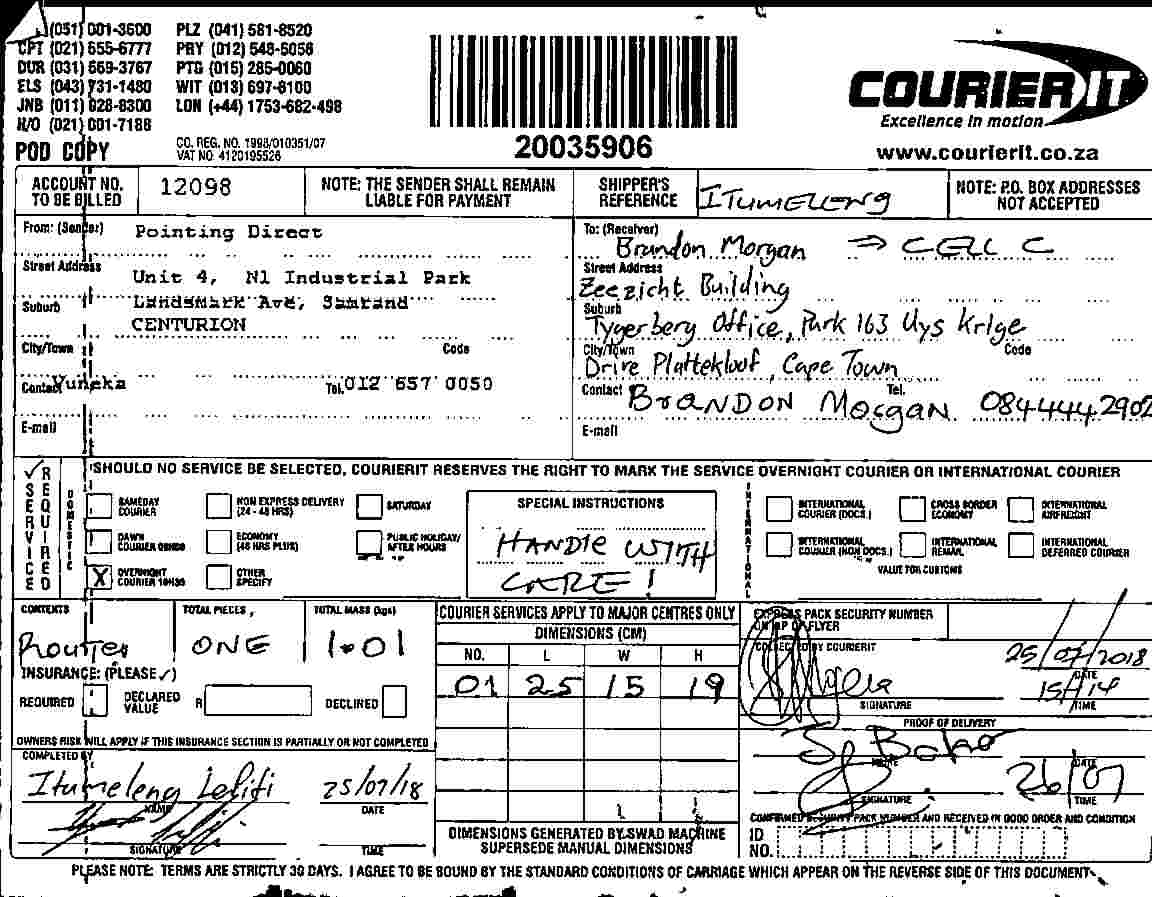 (051) 001-3600 PLZ (041) 581-8520
CPT (021) 555-6777 PRY (012) 548-5058
DUR (031) 569-3767 PTG (015) 285-0060
ELS (043) 731-1480 WIT (013) 697-8100
JNB (011) 828-8300 LON (+44) 1753-682-498
N/O (021) 001-7188
POD COPY
CO. REG. NO. 1998/010351/07
VAT NO. 4120195526
20035906
COURIER IT
Excellence in motion
www.courierit.co.za
ACCOUNT NO. TO BE BILLED 12098
NOTE: THE SENDER SHALL REMAIN LIABLE FOR PAYMENT
SHIPPER'S REFERENCE ITUMELENG
NOTE: P.O. BOX ADDRESSES NOT ACCEPTED
From: (Sender) Pointing Direct
Street Address Unit 4, N1 Industrial Park
Suburb Landsmark Ave, Samrand
CENTURION
City/Town Code
Contact Yuneka Tel. 012 657 0050
E-mail
To: (Receiver) Brandon Morgan ⇒ CELL C
Street Address
Zeezicht Building
Suburb
Tygerberg Office, Park 163 Uys Krige
City/Town Code
Drive Plattekloof, Cape Town
Contact BranDON Morgan Tel. 0844442902
E-mail
✓ SERVICE REQUIRED
DOMESTIC
SHOULD NO SERVICE BE SELECTED, COURIERIT RESERVES THE RIGHT TO MARK THE SERVICE OVERNIGHT COURIER OR INTERNATIONAL COURIER
SAMEDAY COURIER
NON EXPRESS DELIVERY (24 - 48 HRS)
SATURDAY
DAWN COURIER
ECONOMY (48 HRS PLUS)
PUBLIC HOLIDAY/ AFTER HOURS
X OVERNIGHT COURIER 10H30
OTHER SPECIFY
SPECIAL INSTRUCTIONS
HANDLE WITH
CARE!
INTERNATIONAL
INTERNATIONAL COURIER (DOCS.)
CROSS BORDER ECONOMY
INTERNATIONAL AIRFREIGHT
INTERNATIONAL COURIER (NON DOCS.)
INTERNATIONAL REMAIL
INTERNATIONAL DEFERRED COURIER
VALUE FOR CUSTOMS
CONTENTS TOTAL PIECES TOTAL MASS (kgs)
Router ONE 1.01
INSURANCE: (PLEASE ✓)
REQUIRED DECLARED VALUE R DECLINED
OWNERS RISK WILL APPLY IF THIS INSURANCE SECTION IS PARTIALLY OR NOT COMPLETED
COMPLETED BY
Itumeleng 25/07/18
NAME DATE
SIGNATURE TIME
COURIER SERVICES APPLY TO MAJOR CENTRES ONLY
DIMENSIONS (CM)
NO. L W H
01 25 15 19
DIMENSIONS GENERATED BY SWAD MACHINE SUPERSEDE MANUAL DIMENSIONS
EXPRESS PACK SECURITY NUMBER ON FLYER
COLLECTED BY COURIERIT
25/07/2018
DATE
15H14
SIGNATURE TIME
PROOF OF DELIVERY
NAME DATE
26/07
SIGNATURE TIME
CONFIRMED SECURITY PACK NUMBER AND RECEIVED IN GOOD ORDER AND CONDITION
ID NO.
PLEASE NOTE: TERMS ARE STRICTLY 30 DAYS. I AGREE TO BE BOUND BY THE STANDARD CONDITIONS OF CARRIAGE WHICH APPEAR ON THE REVERSE SIDE OF THIS DOCUMENT